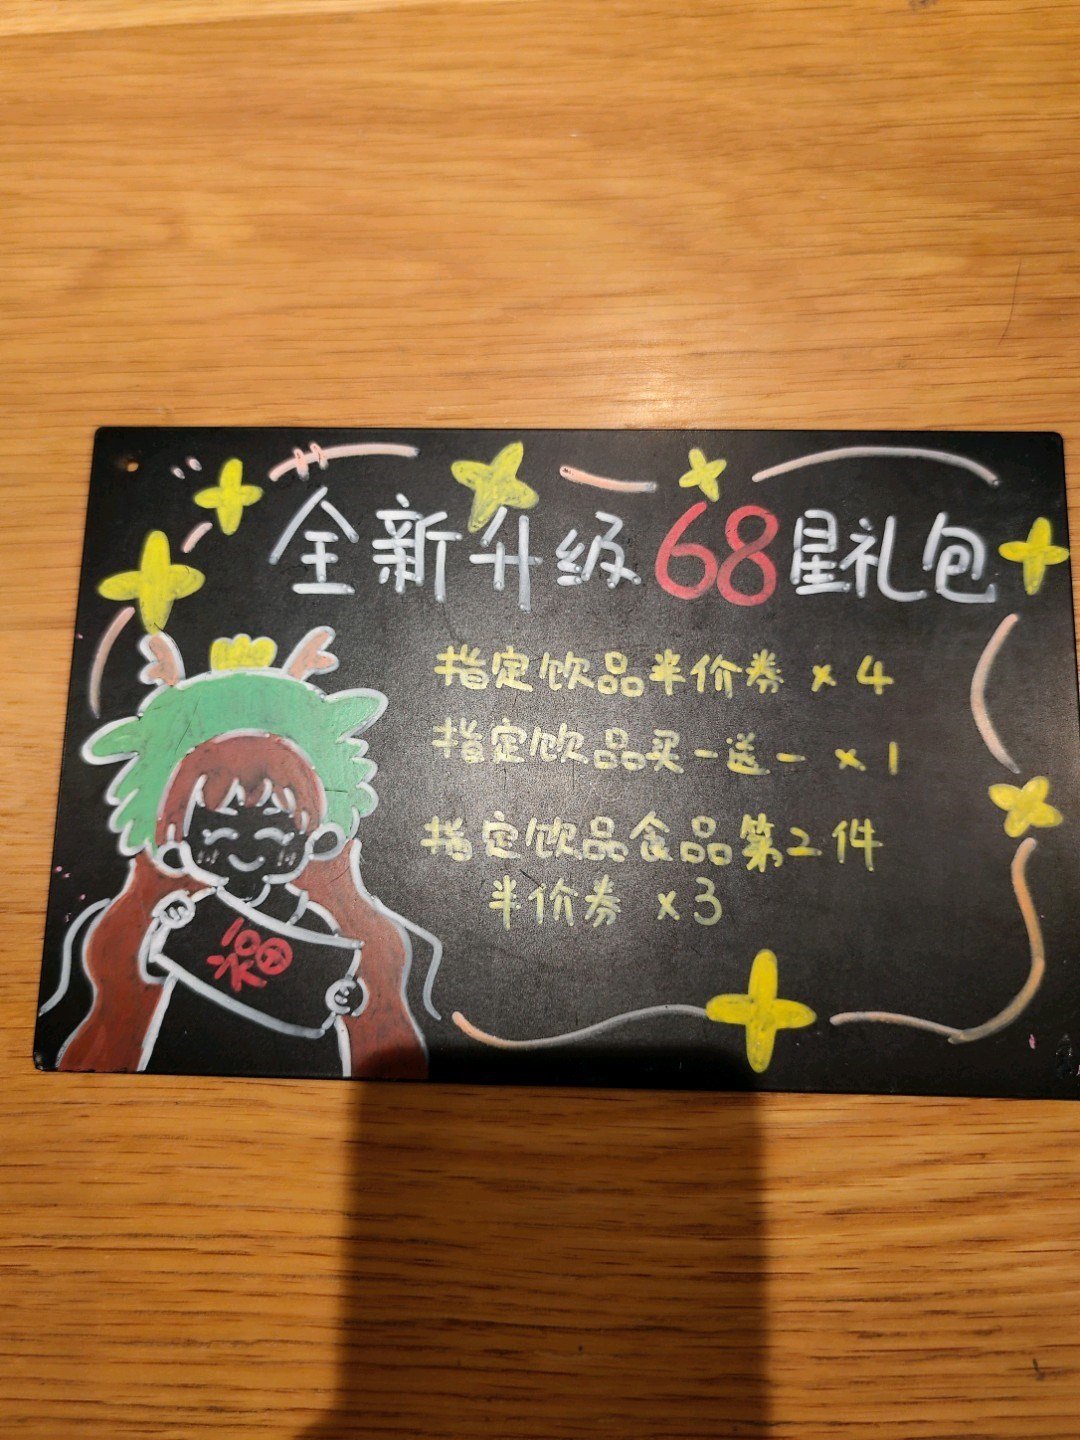 全新升级68星礼包
指定饮品半价券 x4
指定饮品买一送一 x1
指定饮品食品第2件
半价券 x3